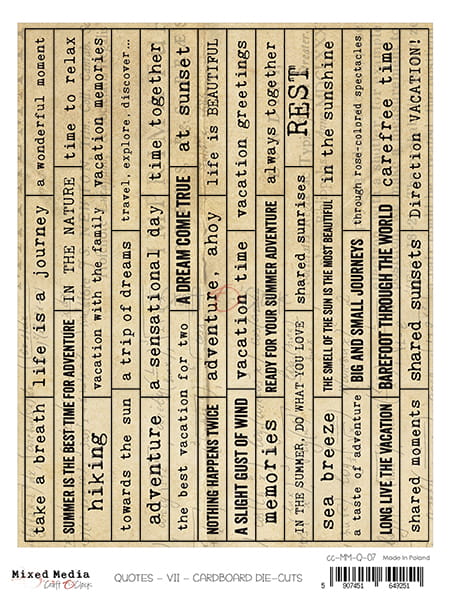 take a breath
life is a journey
a wonderful moment
SUMMER IS THE BEST TIME FOR ADVENTURE
IN THE NATURE
time to relax
hiking
vacation with the family
vacation memories
towards the sun
a trip of dreams
travel, explore, discover...
adventure
a sensational day
time together
the best vacation for two
A DREAM COME TRUE
at sunset
NOTHING HAPPENS TWICE
adventure, ahoy
life is BEAUTIFUL
A SLIGHT GUST OF WIND
vacation time
vacation greetings
memories
READY FOR YOUR SUMMER ADVENTURE
always together
IN THE SUMMER, DO WHAT YOU LOVE
shared sunrises
REST
sea breeze
THE SMELL OF THE SUN IS THE MOST BEAUTIFUL
in the sunshine
a taste of adventure
BIG AND SMALL JOURNEYS
through rose-colored spectacles
LONG LIVE THE VACATION
BAREFOOT THROUGH THE WORLD
carefree time
shared moments
shared sunsets
Direction VACATION!
Mixed Media
by Craft O'Clock
QUOTES - VII - CARDBOARD DIE-CUTS
cc-MM-Q-07
Made in Poland
5 907451 649251